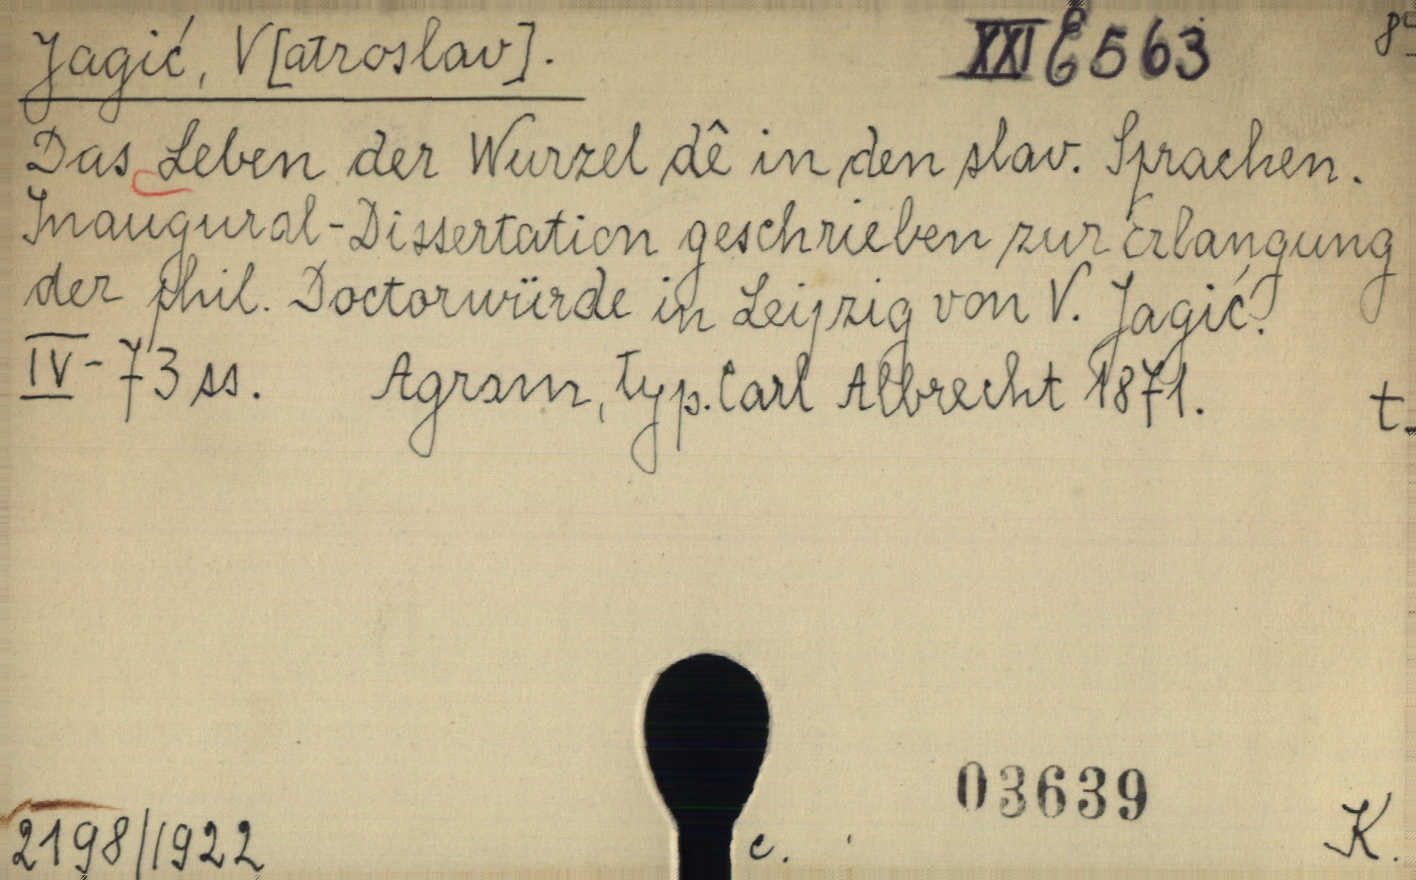 Jagić, V[atroslav]. XXI E 563 8°
Das Leben der Wurzel dê in den slav. Sprachen.
Inaugural-Dissertation geschrieben zur Erlangung
der phil. Doctorwürde in Leipzig von V. Jagić.
IV - 73 ss. Agram, typ. Carl Albrecht 1871. t.
03639
2198/1922 c. K.